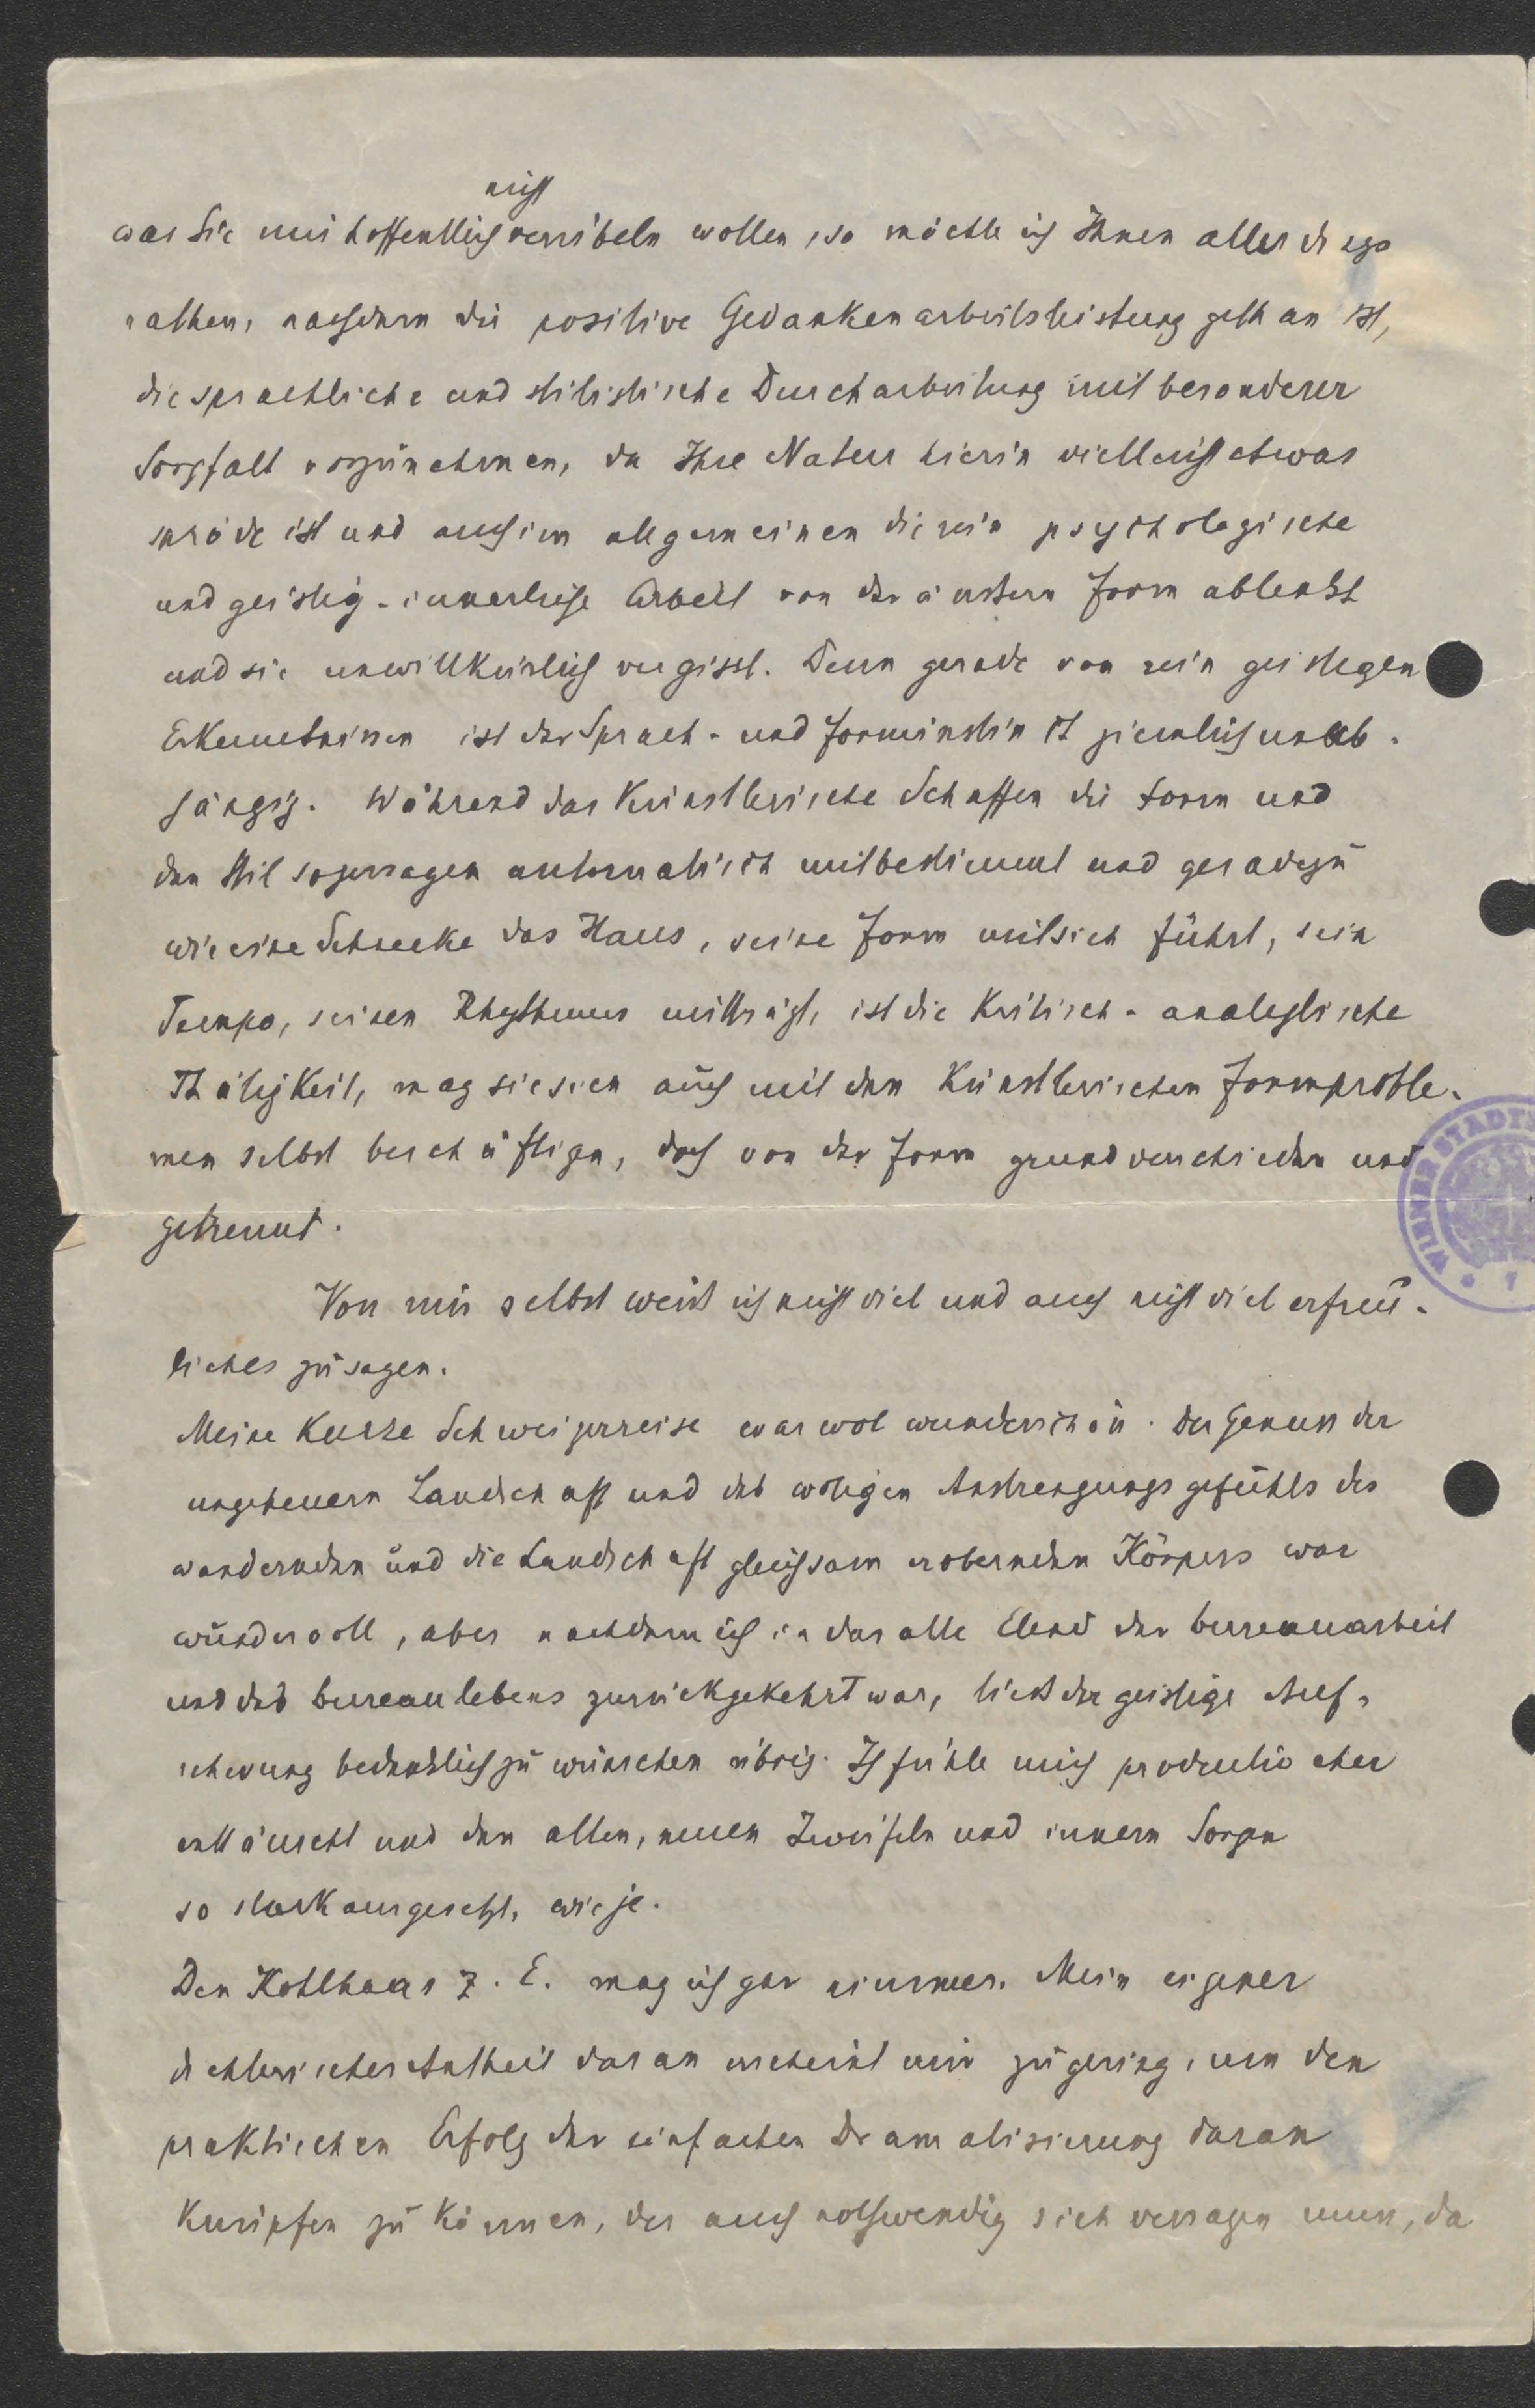 nicht
was Sie mir hoffentlich verübeln wollen, so möchte ich Ihnen allerdings
rathen, nachdem die positive Gedankenarbeitsleistung gethan ist,
die sprachliche und stilistische Durcharbeitung mit besonderer
Sorgfalt vorzunehmen, da Ihre Natur hierin vielleicht etwas
spröde ist und auch im allgemeinen die rein psychologische
und geistig-innerliche Arbeit von der äussern Form ablenkt
und sie unwillkürlich vergisst. Denn gerade von rein geistigen
Erkenntnissen ist der Sprach- und Forminstinkt ziemlich unab-
hängig. Während das künstlerische Schaffen die Form und
den Stil sozusagen automatisch mitbestimmt und geradezu
wie eine Schnecke das Haus, seine Form mit sich führt, sein
Tempo, seinen Rhythmus mitträgt, ist die kritisch-analytische
Thätigkeit, mag sie sich auch mit den künstlerischen Formproble-
men selbst beschäftigen, doch von der Form grundverschieden und
getrennt.
Von mir selbst weiß ich nicht viel und auch nicht viel erfreu-
liches zu sagen.
Meine kurze Schweizerreise war wol wunderschön. Der Genuss der
ungeheuern Landschaft und des woligen Anstrengungsgefühls des
wandernden und die Landschaft gleichsam erobernden Körpers war
wundervoll, aber nachdem ich in das alte Elend der bureauarbeit
und des bureaulebens zurückgekehrt war, ließ der geistige Auf-
schwung bedenklich zu wünschen übrig. Ich fühle mich productiv eher
enttäuscht und den alten, neuen Zweifeln und innern Sorgen
so stark ausgesetzt, wie je.
Den Kohlhaas z. E. mag ich gar nimmer. Mein eigener
dichterischer Antheil daran erscheint mir zu gering, um den
praktischen Erfolg der einfachen Dramatisierung daran
knüpfen zu können, der auch nothwendig sich versagen muss, da
WIENER STADT